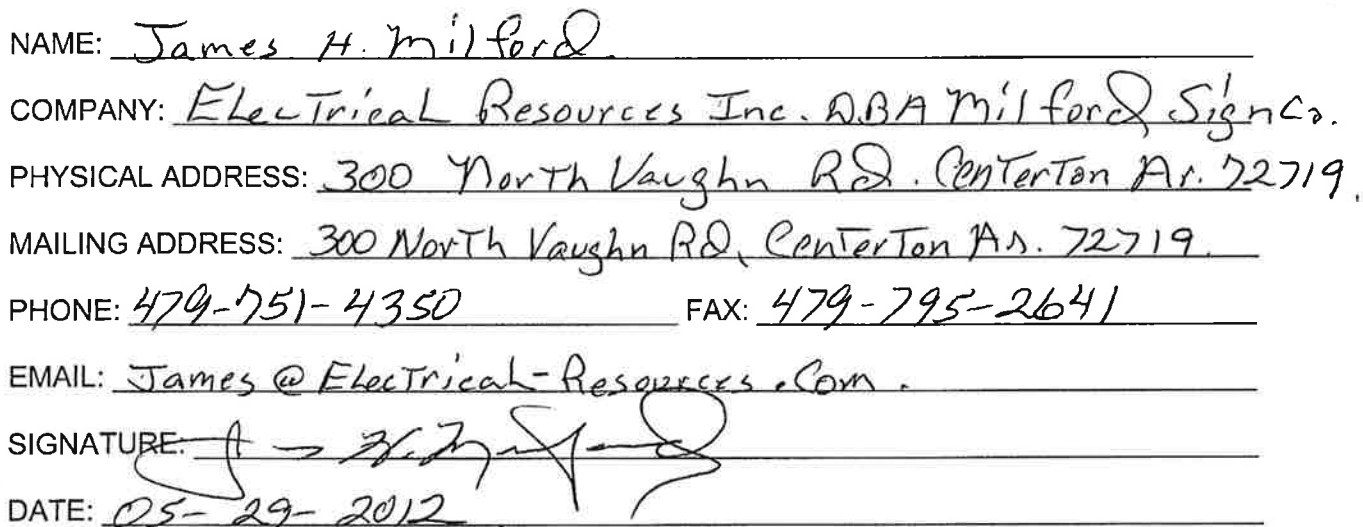 NAME: James H. Milford
COMPANY: ElecTrical Resources Inc. DBA Milford Sign Co.
PHYSICAL ADDRESS: 300 North Vaughn RD. CenTerTon Ar. 72719.
MAILING ADDRESS: 300 NorTh Vaughn RD, CenTerTon Ar. 72719.
PHONE: 479-751-4350 FAX: 479-795-2641
EMAIL: James @ ElecTrical-Resources.Com.
SIGNATURE: J H. Milford
DATE: 05-29-2012